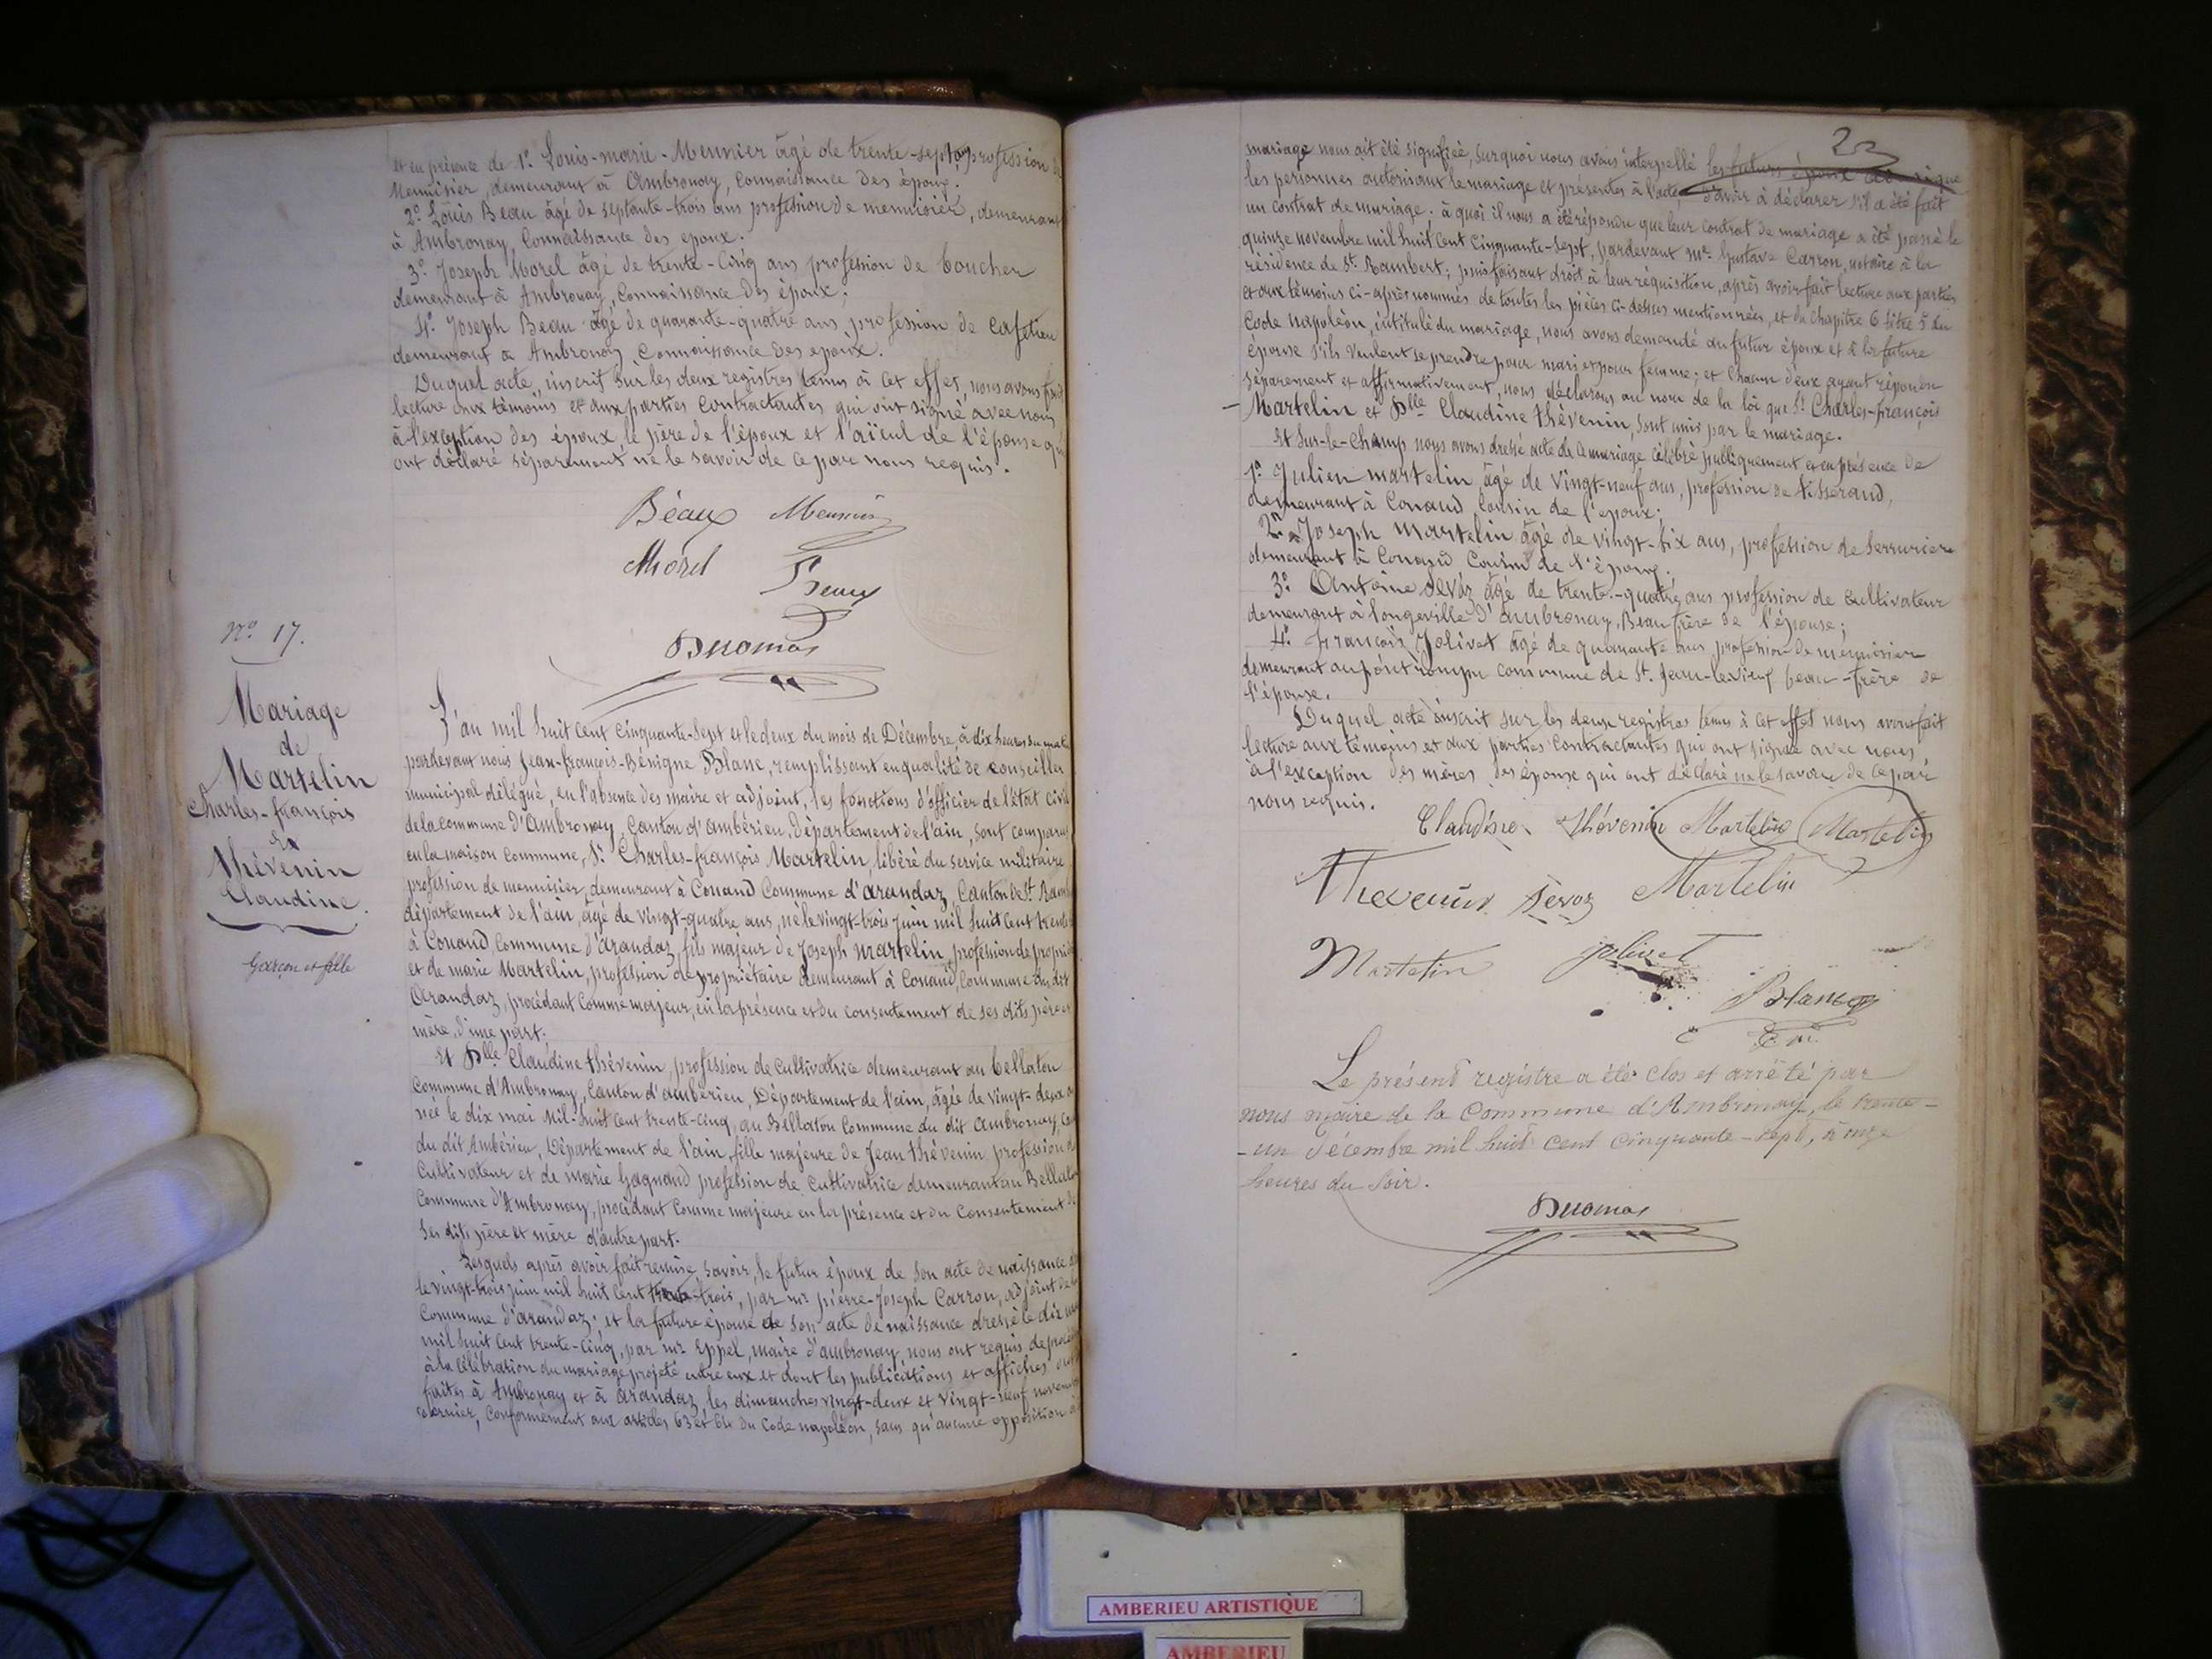 et en présence de 1° Louis-marie-Meunier âgé de trente-sept ans profession de
Menuisier, demeurant à Ambronay, Connaissance des époux.
2° Louis Beau âgé de septante-trois ans profession de menuisier, demeurant
à Ambronay, Connaissance des epoux.
3° Joseph Morel âgé de trente-Cinq ans profession de boucher
demeurant à Ambronay, Connaissance des époux;
4° Joseph Beau âgé de quarante-quatre ans profession de Cafetier
demeurant à Ambronay Connaissance des epoux.
Duquel acte, inscrit sur les deux registres tenus à cet effet, nous avons fait
lecture aux témoins et aux parties Contractantes qui ont signé avec nous
à l'exception des époux le père de l'époux et l'aïeul de l'épouse qui
ont déclaré séparément ne le savoir de ce par nous requis.
Béaux Meunier
Morel Beaux
Ducomas
N° 17.
Mariage
de
Martelin
Charles-françois
et
Thévenin
Claudine
Garçon et fille
L'an mil huit Cent Cinquante-Sept et le deux du mois de Décembre, à dix heures du matin
pardevant nous Jean-françois-Bénigne Blanc, remplissant en qualité de conseiller
municipal délégué, en l'absence des maire et adjoint, les fonctions d'officier de l'état civil
de la Commune d'Ambronay, Canton d'ambérieu, département de l'ain, sont comparus
en la maison Commune, Sr. Charles-françois Martelin, libéré du service militaire
profession de menuisier, demeurant à Conand Commune d'arandaz, Canton de St. Ramb
département de l'ain, âgé de vingt-quatre ans, né le vingt-trois juin mil huit Cent trente
à Conand, Commune d'arandaz, fils majeur de Joseph martelin, profession de proprié
et de marie Martelin, profession de propriétaire demeurant à Conand, Commune du dit
Arandaz, procédant Comme majeur, en la présence et du consentement de ses dits père et
mère, d'une part.
Et Dlle Claudine thévenin, profession de Cultivatrice demeurant au bellaton
Commune d'Ambronay, Canton d'ambérieu, Département de l'ain, âgée de vingt-deux a
née le dix mai Mil-huit Cent trente-Cinq, au Bellaton Commune du dit Ambronay, Can
du dit Ambérieu, Département de l'ain, fille majeure de Jean thévenin profession de
Cultivateur et de marie Gagnand profession de Cultivatrice demeurant au Bellaton
Commune d'Ambronay, procédant Comme majeure en la présence et du Consentement de
ses dits père et mère d'autre part.
Lesquels après avoir fait remise, savoir, le futur époux de son acte de naissance
le vingt-trois juin mil huit Cent trente-trois, par mr pierre-Joseph Carron, adjoint de la
Commune d'arandaz; et la future épouse de son acte de naissance dressé le dix mai
mil huit Cent trente-Cinq, par mr Eppel, maire d'ambronay, nous ont requis de procéder
à la Célébration du mariage projeté entre eux et dont les publications et affiches ont
faites à Ambronay et à Arandaz les dimanches vingt-deux et vingt-neuf novembre
dernier, Conformément aux articles 63 et 64 du Code napoléon, sans qu'aucune opposition à
mariage nous ait été signifiée, surquoi nous avons interpellé les futurs époux ainsi que
les personnes autorisant le mariage et présentes à l'acte, d'avoir à déclarer s'il a été fait
un contrat de mariage; à quoi il nous a été répondu que leur contrat de mariage a été passé le
quinze novembre mil huit Cent Cinquante-Sept, pardevant Mr Gustave Carron, notaire à la
résidence de St. Rambert; puis faisant droit à leur réquisition, après avoir fait lecture aux parties
et aux témoins ci-après nommés de toutes les pièces ci-dessus mentionnées, et du Chapitre 6 titre 5 du
Code Napoléon, intitulé du mariage, nous avons demandé au futur époux et à la future
épouse s'ils veulent se prendre pour mari et pour femme; et Chacun d'eux ayant répondu
séparément et affirmativement, nous déclarons au nom de la loi que Sr Charles-françois
Martelin et Dlle Claudine thévenin, sont unis par le mariage.
Et Sur-le-Champ nous avons dressé acte de ce mariage célébré publiquement et en présence de
1° Julien martelin, âgé de vingt-neuf ans, profession de tisserand,
demeurant à Conand Cousin de l'epoux;
2° Joseph martelin âgé de vingt-six ans, profession de serrurier
demeurant à Conand Cousin de l'époux.
3° Antoine devoz âgé de trente-quatre ans profession de Cultivateur
demeurant à Longeville d'ambronay, Beau frère de l'épouse;
4° françois Jolivet âgé de quarante ans profession de menuisier
demeurant au pont rompu commune de St. Jean-le vieux beau-frère de
l'épouse.
Duquel acte inscrit sur les deux registres tenus à cet effet nous avons fait
lecture aux témoins et aux parties Contractantes qui ont signé avec nous
à l'exception des mères des épouse qui ont déclaré ne le savoir de ce par
nous requis.
Claudine Thévenin Martelin Martelin
Thevenin Martelin
Martelin jolivet
Blanc
Le présent registre a été Clos et arrêté par
nous maire de la Commune d'Ambronay, le trente-
-un Décembre mil huit cent cinquante-sept, à onze
heures du Soir.
Ducomas
AMBERIEU ARTISTIQUE
AMBERIEU